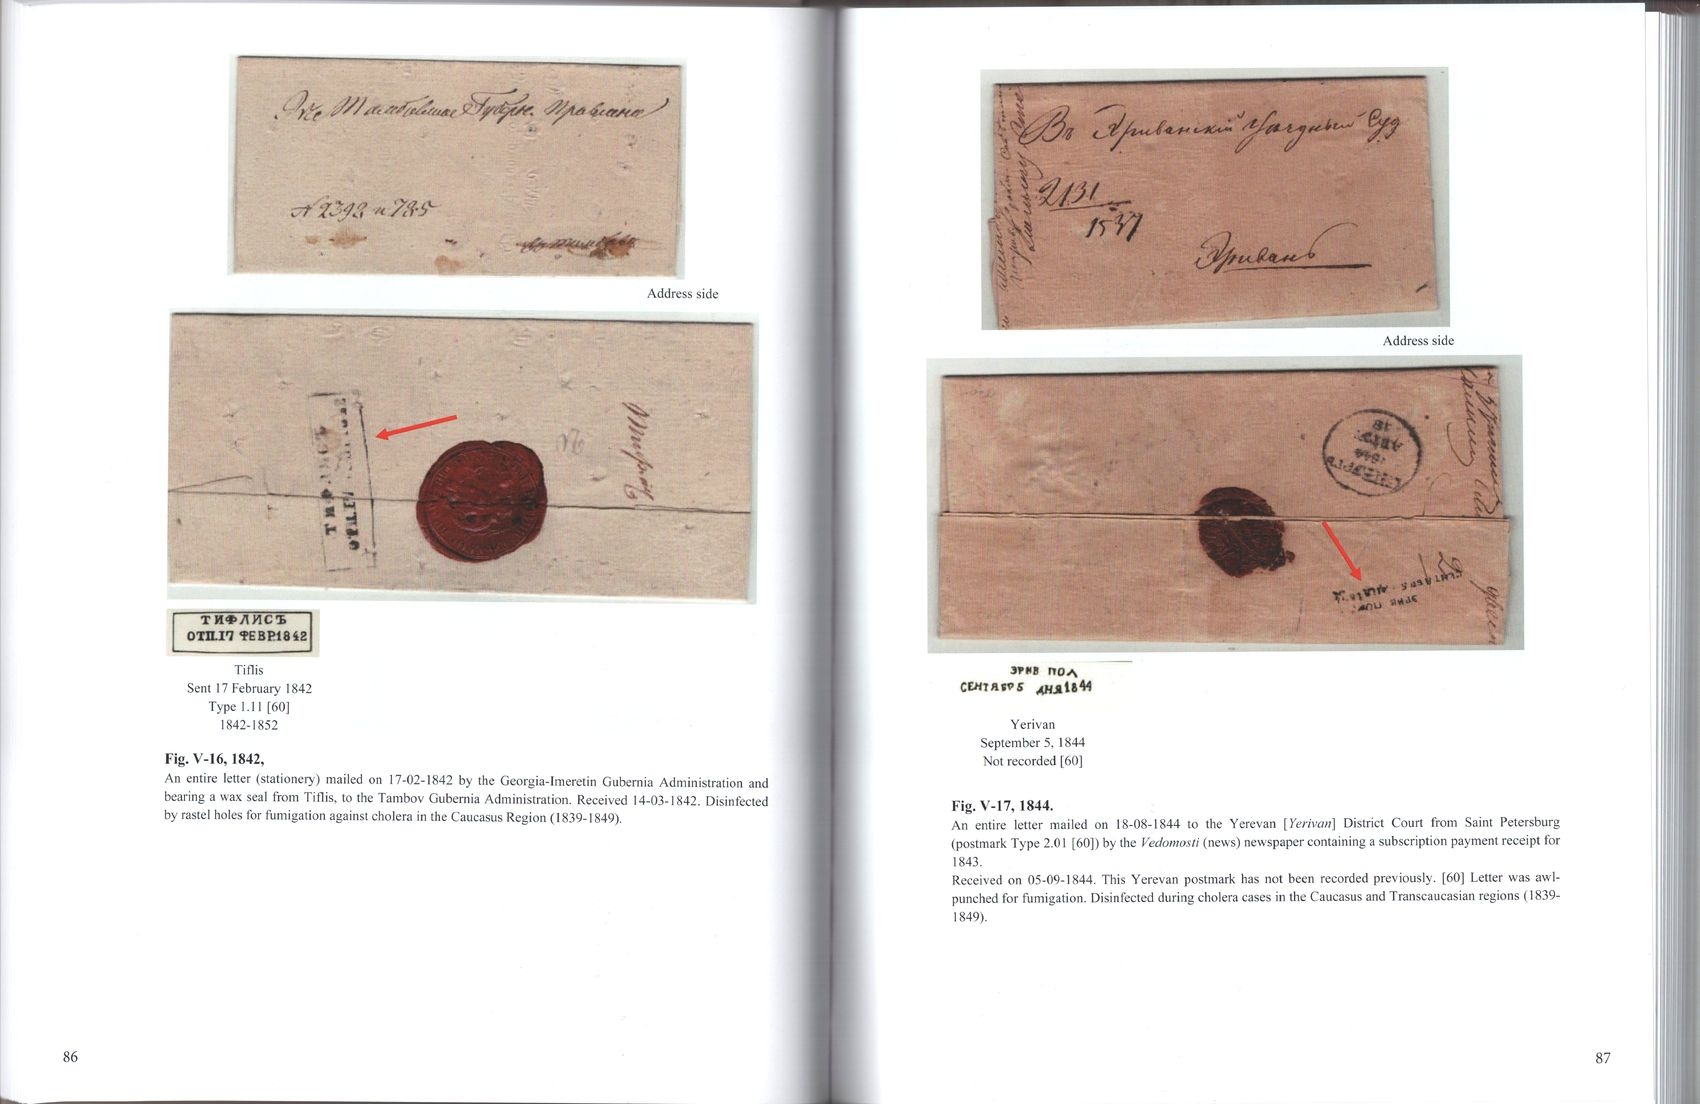 Губерн. Правление
№ 2392 и 785
Address side
ТИФЛИСЪ
ТИФЛИСЪ
ОТП.17 ФЕВР.1842
Tiflis
Sent 17 February 1842
Type 1.11 [60]
1842-1852
Fig. V-16, 1842,
An entire letter (stationery) mailed on 17-02-1842 by the Georgia-Imeretin Gubernia Administration and
bearing a wax seal from Tiflis, to the Tambov Gubernia Administration. Received 14-03-1842. Disinfected
by rastel holes for fumigation against cholera in the Caucasus Region (1839-1849).
86
Въ Эриванский уѣздный Суд
2131
1537
Эривань
Address side
1844
ЭРИВ ПОЛ
СЕНТЯБР 5 ДНЯ 1844
Yerivan
September 5, 1844
Not recorded [60]
Fig. V-17, 1844.
An entire letter mailed on 18-08-1844 to the Yerevan [Yerivan] District Court from Saint Petersburg
(postmark Type 2.01 [60]) by the Vedomosti (news) newspaper containing a subscription payment receipt for
1843.
Received on 05-09-1844. This Yerevan postmark has not been recorded previously. [60] Letter was awl-
punched for fumigation. Disinfected during cholera cases in the Caucasus and Transcaucasian regions (1839-
1849).
87